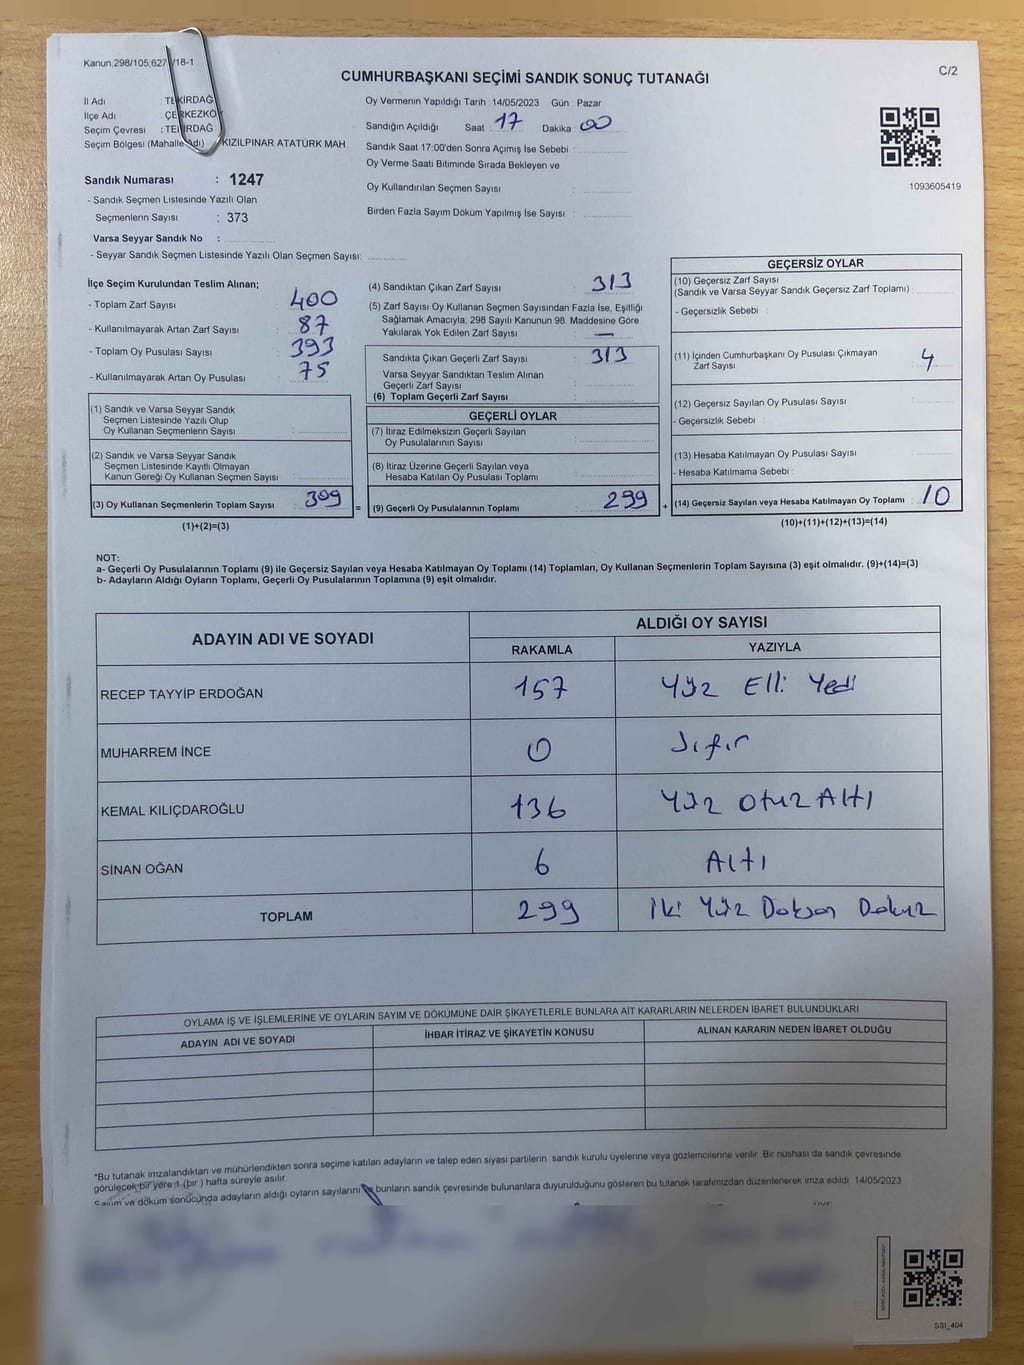 Kanun,298/105,627 /18-1
C/2
CUMHURBAŞKANI SEÇİMİ SANDIK SONUÇ TUTANAĞI
İl Adı : TEKİRDAĞ
İlçe Adı : ÇERKEZKÖY
Seçim Çevresi : TEKİRDAĞ
Seçim Bölgesi (Mahalle Adı) KIZILPINAR ATATÜRK MAH.
Sandık Numarası : 1247
- Sandık Seçmen Listesinde Yazılı Olan
Seçmenlerin Sayısı : 373
Varsa Seyyar Sandık No :
- Seyyar Sandık Seçmen Listesinde Yazılı Olan Seçmen Sayısı:
Oy Vermenin Yapıldığı Tarih :14/05/2023 Gün : Pazar
Sandığın Açıldığı Saat : 17 Dakika : 00
Sandık Saat 17:00'den Sonra Açımış İse Sebebi :
Oy Verme Saati Bitiminde Sırada Bekleyen ve
Oy Kullandırılan Seçmen Sayısı :
Birden Fazla Sayım Döküm Yapılmış İse Sayısı :
1093605419
İlçe Seçim Kurulundan Teslim Alınan;
- Toplam Zarf Sayısı : 400
- Kullanılmayarak Artan Zarf Sayısı : 87
- Toplam Oy Pusulası Sayısı : 393
- Kullanılmayarak Artan Oy Pusulası : 75
(1) Sandık ve Varsa Seyyar Sandık
Seçmen Listesinde Yazılı Olup
Oy Kullanan Seçmenlerin Sayısı :
(2) Sandık ve Varsa Seyyar Sandık
Seçmen Listesinde Kayıtlı Olmayan
Kanun Gereği Oy Kullanan Seçmen Sayısı :
(3) Oy Kullanan Seçmenlerin Toplam Sayısı : 309
(1)+(2)=(3)
(4) Sandıktan Çıkan Zarf Sayısı : 313
(5) Zarf Sayısı Oy Kullanan Seçmen Sayısından Fazla İse, Eşitliği
Sağlamak Amacıyla; 298 Sayılı Kanunun 98. Maddesine Göre
Yakılarak Yok Edilen Zarf Sayısı : —
Sandıkta Çıkan Geçerli Zarf Sayısı : 313
Varsa Seyyar Sandıktan Teslim Alınan
Geçerli Zarf Sayısı :
(6) Toplam Geçerli Zarf Sayısı :
GEÇERLİ OYLAR
(7) İtiraz Edilmeksizin Geçerli Sayılan
Oy Pusulalarının Sayısı :
(8) İtiraz Üzerine Geçerli Sayılan veya
Hesaba Katılan Oy Pusulası Toplamı :
= (9) Geçerli Oy Pusulalarının Toplamı : 299 +
GEÇERSİZ OYLAR
(10) Geçersiz Zarf Sayısı
(Sandık ve Varsa Seyyar Sandık Geçersiz Zarf Toplamı) :
- Geçersizlik Sebebi :
(11) İçinden Cumhurbaşkanı Oy Pusulası Çıkmayan
Zarf Sayısı : 4
(12) Geçersiz Sayılan Oy Pusulası Sayısı :
- Geçersizlik Sebebi :
(13) Hesaba Katılmayan Oy Pusulası Sayısı :
- Hesaba Katılmama Sebebi :
(14) Geçersiz Sayılan veya Hesaba Katılmayan Oy Toplamı : 10
(10)+(11)+(12)+(13)=(14)
NOT:
a- Geçerli Oy Pusulalarının Toplamı (9) ile Geçersiz Sayılan veya Hesaba Katılmayan Oy Toplamı (14) Toplamları, Oy Kullanan Seçmenlerin Toplam Sayısına (3) eşit olmalıdır. (9)+(14)=(3)
b- Adayların Aldığı Oyların Toplamı, Geçerli Oy Pusulalarının Toplamına (9) eşit olmalıdır.
ADAYIN ADI VE SOYADI
ALDIĞI OY SAYISI
RAKAMLA YAZIYLA
RECEP TAYYİP ERDOĞAN 157 Yüz Elli Yedi
MUHARREM İNCE 0 Sıfır
KEMAL KILIÇDAROĞLU 136 Yüz Otuz Altı
SİNAN OĞAN 6 Altı
TOPLAM 299 İki Yüz Doksan Dokuz
OYLAMA İŞ VE İŞLEMLERİNE VE OYLARIN SAYIM VE DÖKÜMÜNE DAİR ŞİKAYETLERLE BUNLARA AİT KARARLARIN NELERDEN İBARET BULUNDUKLARI
ADAYIN ADI VE SOYADI İHBAR İTİRAZ VE ŞİKAYETİN KONUSU ALINAN KARARIN NEDEN İBARET OLDUĞU
*Bu tutanak imzalandıktan ve mühürlendikten sonra seçime katılan adayların ve talep eden siyasi partilerin sandık kurulu üyelerine veya gözlemcilerine verilir. Bir nüshası da sandık çevresinde
görülecek bir yere 1 (bir ) hafta süreyle asılır.
Sayım ve döküm sonucunda adayların aldığı oyların sayılarını bunların sandık çevresinde bulunanlara duyurulduğunu gösteren bu tutanak tarafımızdan düzenlenerek imza edildi. 14/05/2023
SSI_404